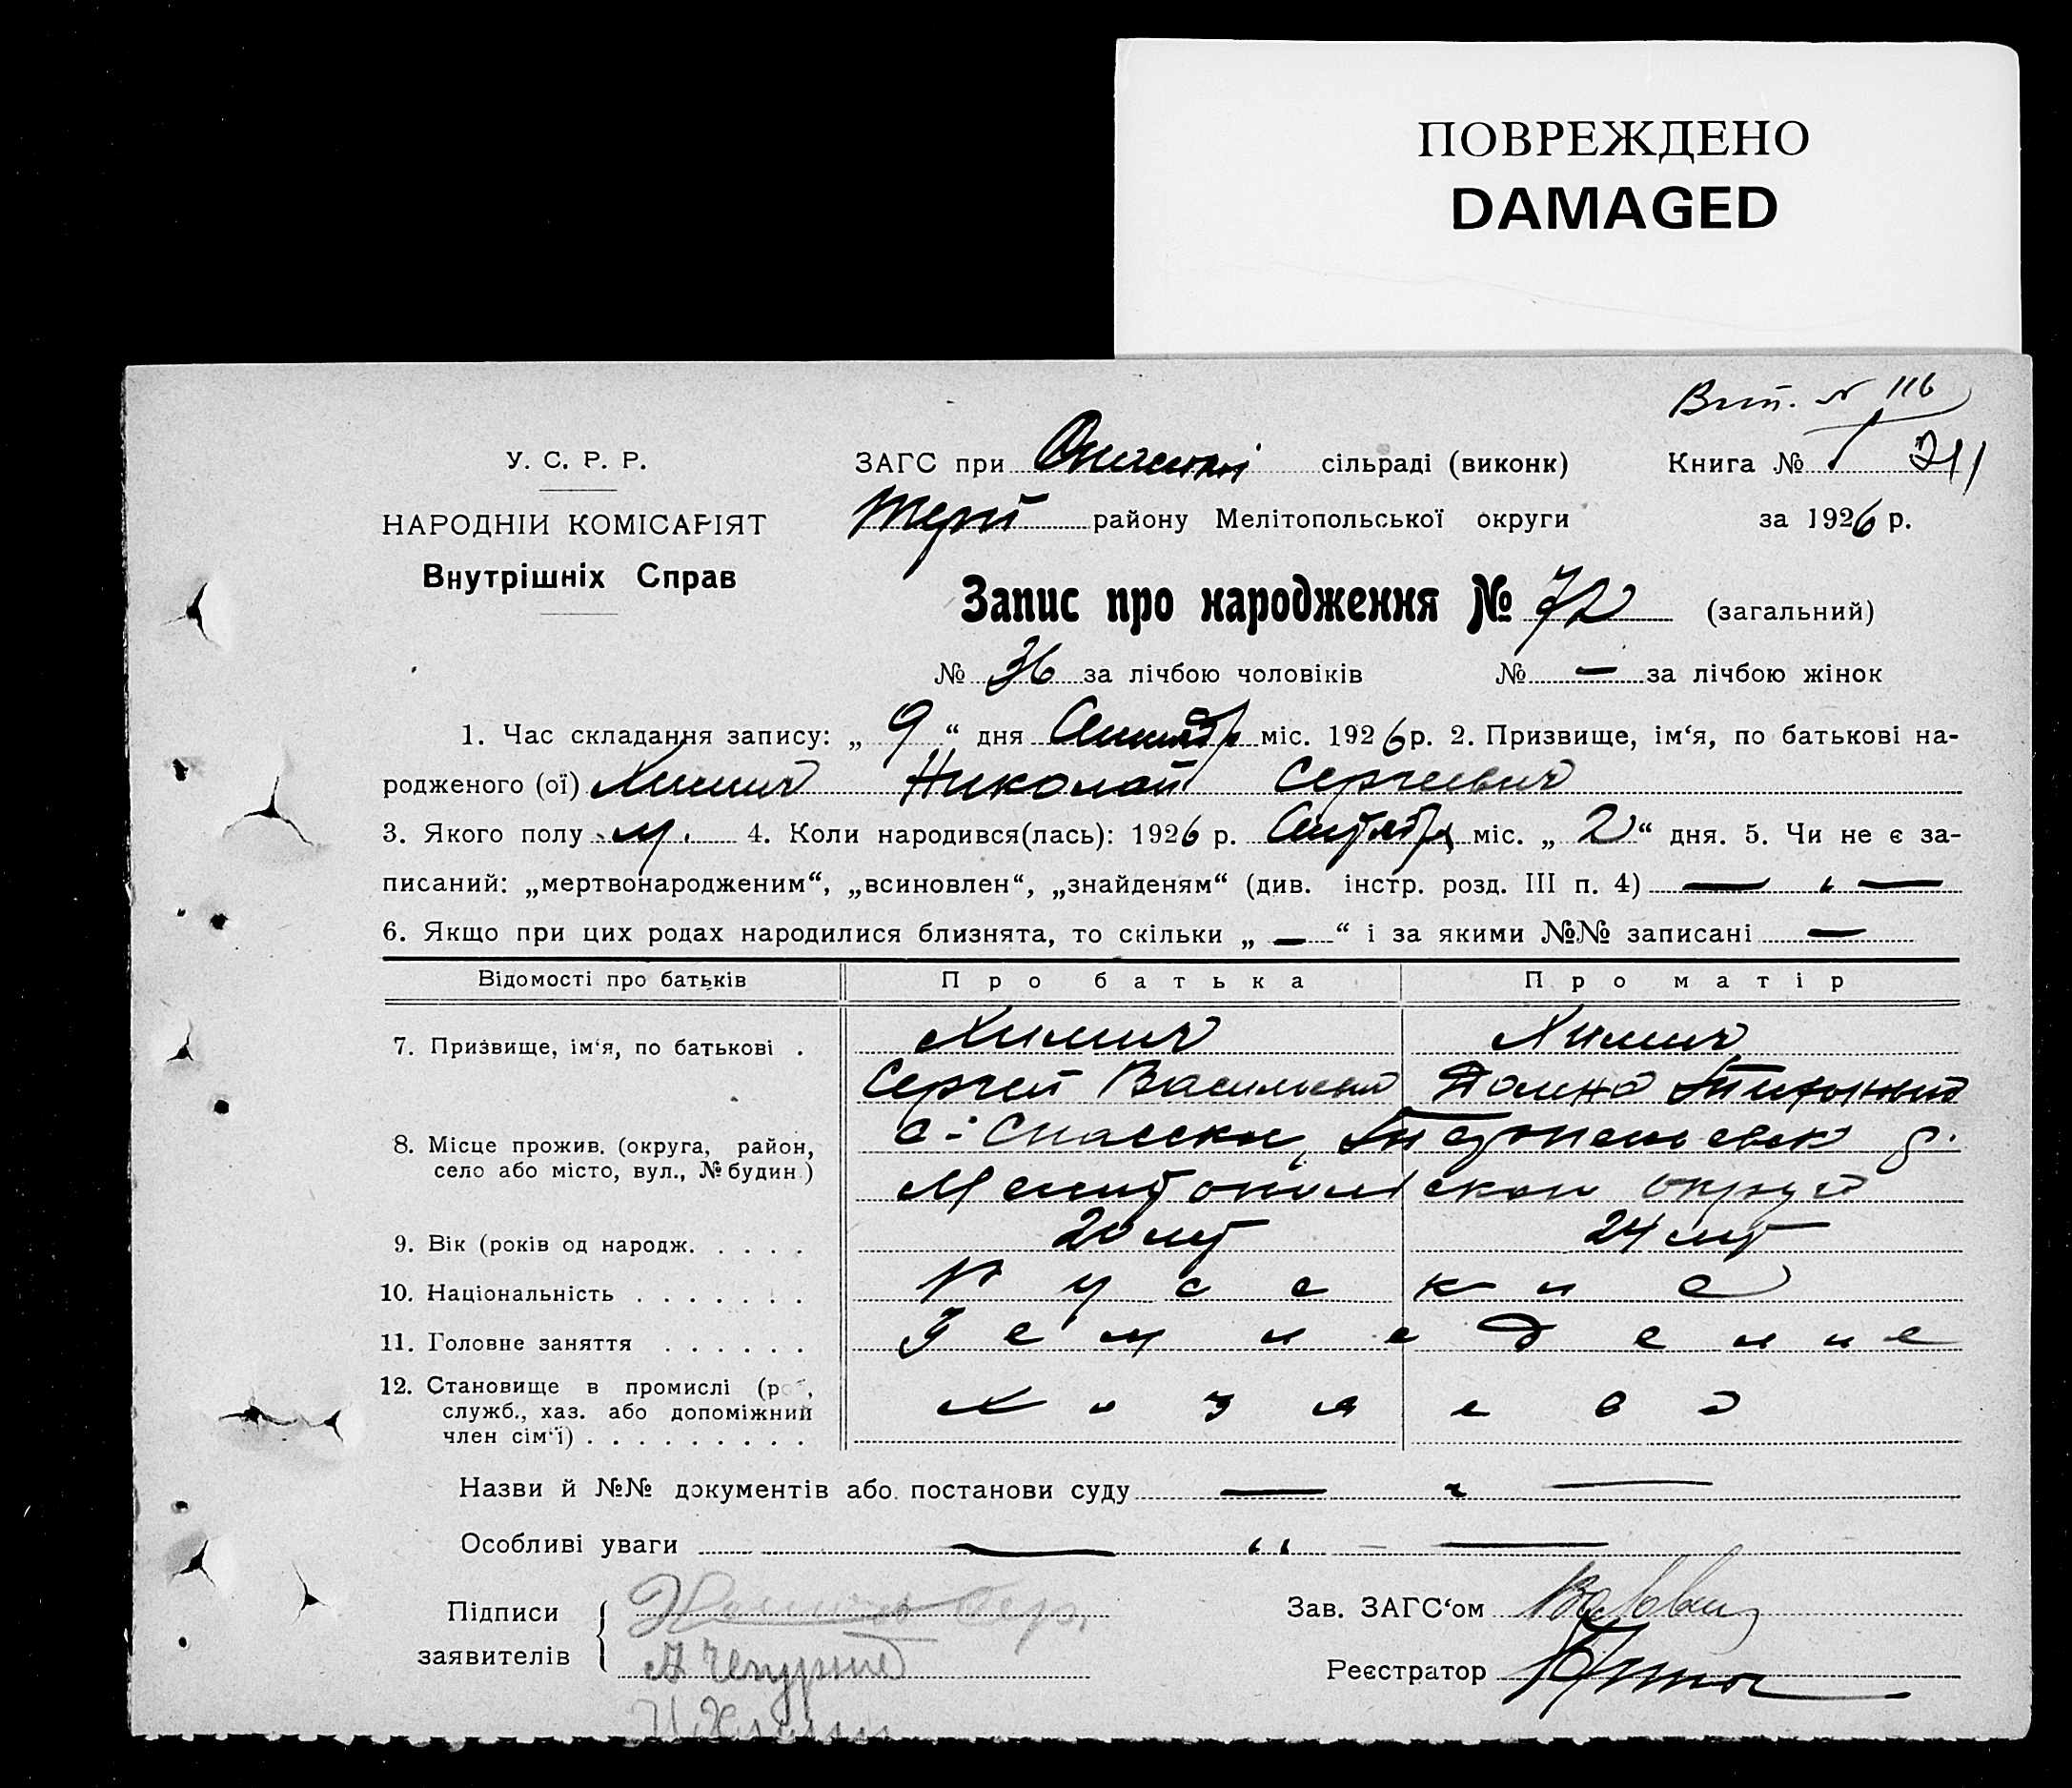 ПОВРЕЖДЕНО
DAMAGED
№ 116
У. С. Р. Р.
ЗАГС при сільраді (виконк)
Книга № 1 211
НАРОДНІЙ КОМІСАРІЯТ
району Мелітопольської округи
за 1926 р.
Внутрішніх Справ
Запис про народження № 72 (загальний)
№ 36 за лічбою чоловіків № — за лічбою жінок
1. Час складання запису: „ 9 “ дня міс. 1926 р. 2. Призвище, ім‘я, по батькові на-
родженого (ої) Химич Николай Сергеевич
3. Якого полу м. 4. Коли народився(лась): 1926 р. Сентября міс. „ 2 “ дня. 5. Чи не є за-
писаний: „мертвонародженим“, „всиновлен“, „знайденям“ (див. інстр. розд. III п. 4) — „ —
6. Якщо при цих родах народилися близнята, то скільки „ — “ і за якими №№ записані —
Відомості про батьків Про батька Про матір
7. Призвище, ім‘я, по батькові . Химич Химич
Сергей
8. Місце прожив. (округа, район,
село або місто, вул., № будин.)
9. Вік (років од народж. . . . . 20 лет 24 лет
10. Національність . . . . . . . Русские
11. Головне заняття . . . . . .
12. Становище в промислі (р ,
служб., хаз. або допоміжний
член сім‘ї) . . . . . . . . . Хозяева
Назви й №№ документів або постанови суду — „ —
Особливі уваги — „ —
Підписи
заявителів
Зав. ЗАГС‘ом
Реєстратор